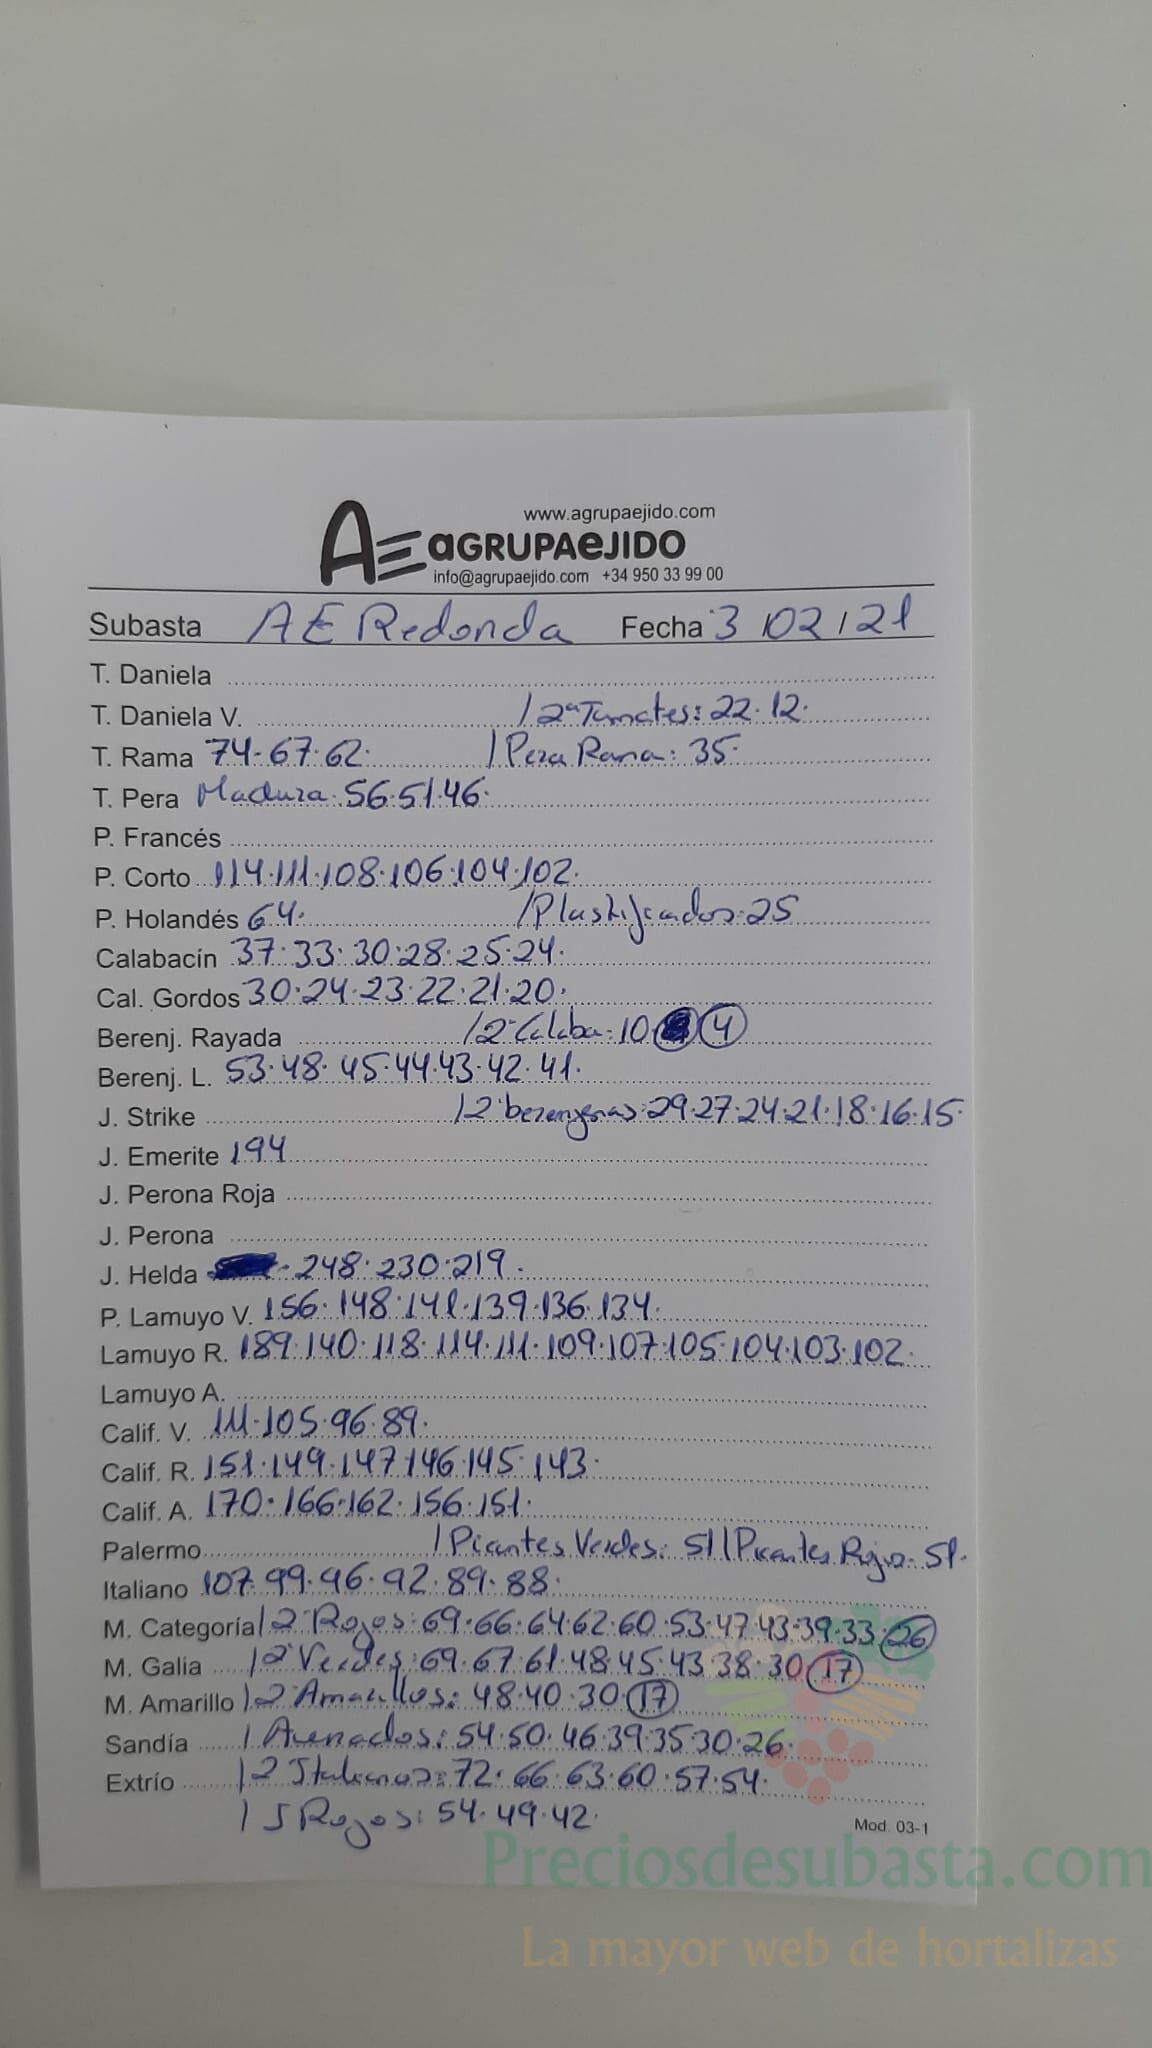 www.agrupaejido.com
AE aGRUPAeJIDO
info@agrupaejido.com +34 950 33 99 00
Subasta AE Redonda Fecha 3/02/21
T. Daniela
T. Daniela V. / 2ª Tomates: 22. 12.
T. Rama 74. 67. 62. / Pera Rama: 35.
T. Pera Madura. 56. 51. 46.
P. Francés
P. Corto 114. 111. 108. 106. 104. 102.
P. Holandés 64. / Plastificados: 25
Calabacín 37. 33. 30. 28. 25. 24.
Cal. Gordos 30. 24. 23. 22. 21. 20.
Berenj. Rayada / 2ª Calaba: 10 4
Berenj. L. 53. 48. 45. 44. 43. 42. 41.
J. Strike / 2ª berengenas: 29. 27. 24. 21. 18. 16. 15.
J. Emerite 194
J. Perona Roja
J. Perona
J. Helda 248. 230. 219.
P. Lamuyo V. 156. 148. 141. 139. 136. 134.
Lamuyo R. 189. 140. 118. 114. 111. 109. 107. 105. 104. 103. 102.
Lamuyo A.
Calif. V. 111. 105. 96. 89.
Calif. R. 151. 149. 147. 146. 145. 143.
Calif. A. 170. 166. 162. 156. 151.
Palermo / Picantes Verdes: 51 / Picantes Rojo: 51.
Italiano 107. 99. 96. 92. 89. 88.
M. Categoría / 2ª Rojos: 69. 66. 64. 62. 60. 53. 47. 43. 39. 33. 26
M. Galia / 2ª Verdes: 69. 67. 61. 48. 45. 43. 38. 30. 17
M. Amarillo / 2 Amarillos: 48. 40. 30. 17
Sandía / Asenados: 54. 50. 46. 39. 35. 30. 26.
Extrío / 2 Italianos: 72. 66. 63. 60. 57. 54.
/ 5 Rojos: 54. 49. 42.
Mod. 03-1
Preciosdesubasta.com
La mayor web de hortalizas